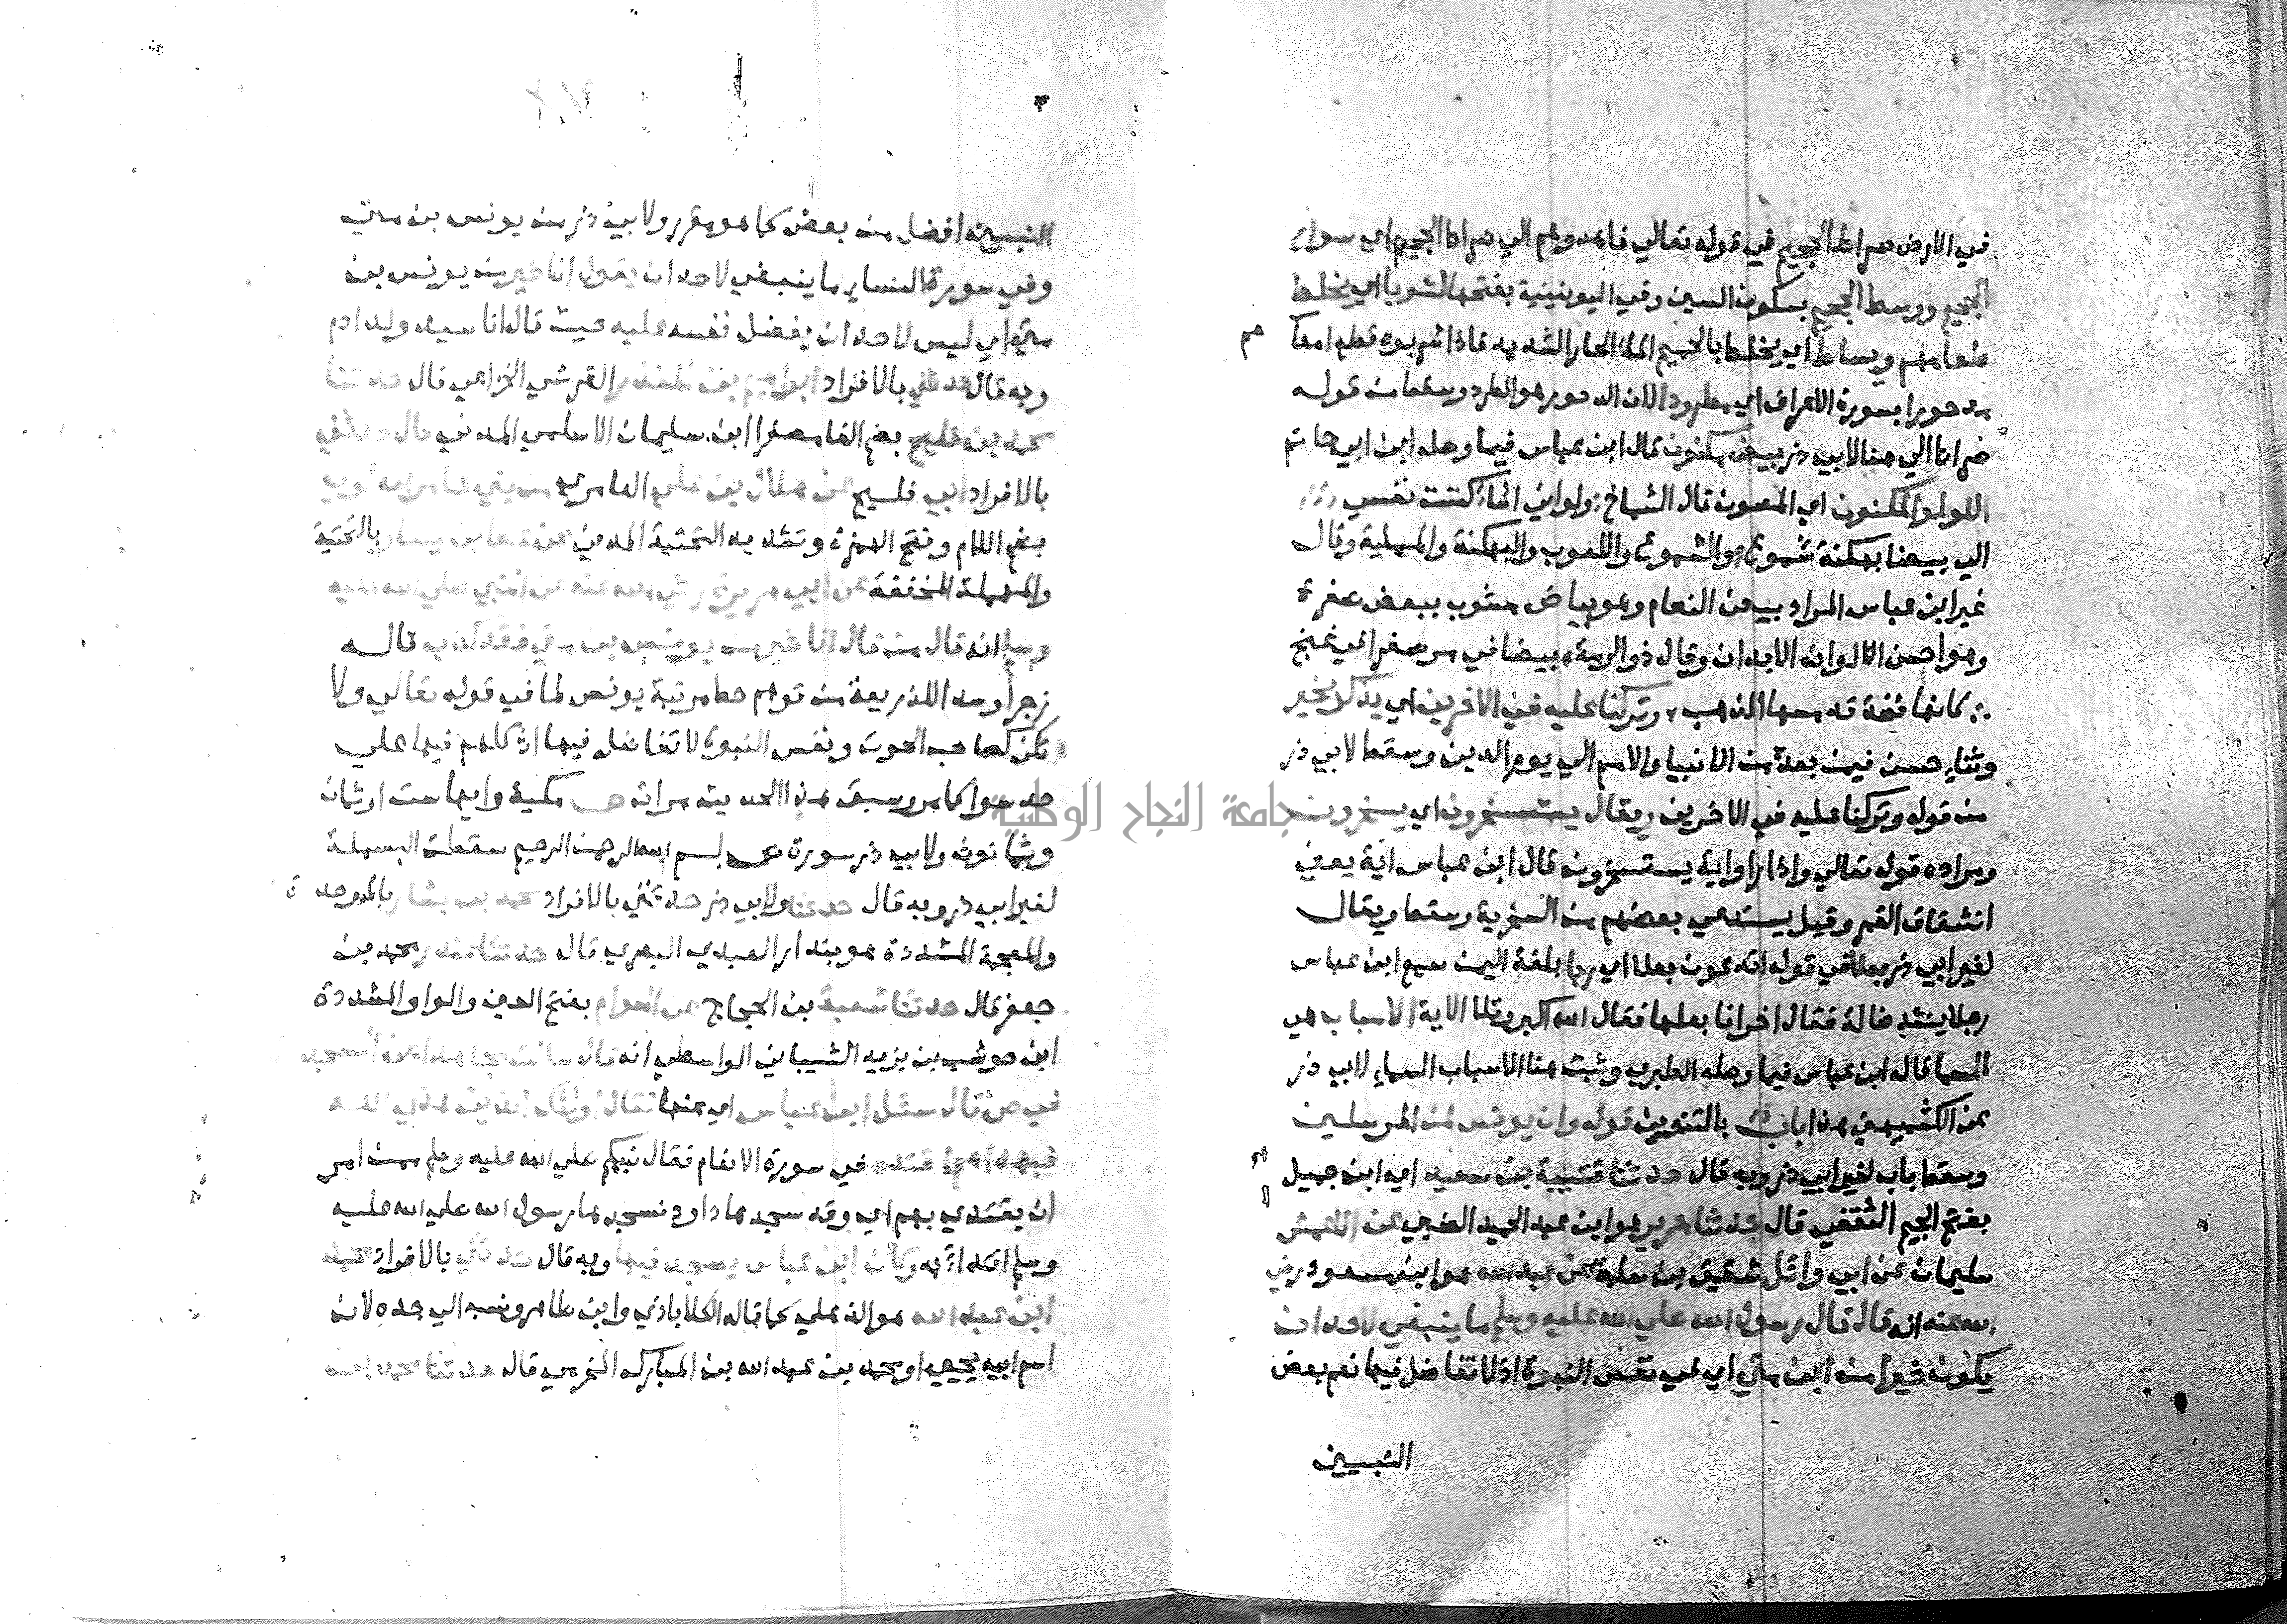 في الارض صراط الجحيم في قوله تعالي فاهدوهم الي صراط الجحيم اي سواء
الجحيم ووسط الجحيم بسكون السين وفي اليونينية بفتحها لشوبا اي يخلط
طعامهم ويساط اي يخلط بالحميم الماء الحار الشديد فاذا شربوه قطع امعا هم
مدحورا بسورة الاعراف اي مطرودا لان الدحور هو الطرد وسقط من قوله
صراط الي هنا لابي ذر بيض مكنون قال ابن عباس فيما وصله ابن ابي حاتم
اللولو المكنون اي المصون قال الشماخ ولو اني اشاء كننت نفسي
الي بيضا بهكنة شموع والشموع اللعوب والبهكنة الممتلية وقال
غير ابن عباس المراد بيض النعام وهو بياض مشوب ببعض صفرة
وهو احسن الالوان الابدان وقال ذو الرمة بيضا في مرح صفرا في غنج
كانها فضة قد مسها الذهب وتركنا عليه في الاخرين اي يذكر بخير
وثناء حسن فيمن بعده من الانبيا والامم الي يوم الدين وسقط لابي ذر
من قوله وتركنا عليه في الاخرين ويقال يستسخرون اي يسخرون
ومراده قوله تعالي واذا راوا اية يستسخرون قال ابن عباس اية يعني
انشقاق القمر وقيل يستدعي بعضهم من السخرية وسقط ويقال
لغير ابي ذر بعلا في قوله اتدعون بعلا اي ربا بلغة اليمن سمع ابن عباس
رجلا ينشد ضالة فقال اخر انا بعلها فقال الله اكبر وتلا الاية الاسباب هي
السما قاله ابن عباس فيما وصله الطبري وثبت هنا الاسباب السماء لابي ذر
عن الكشميهني هذا باب بالتنوين قوله وان يونس لمن المرسلين
وسقط باب لغير ابي ذر وبه قال حدثنا قتيبة بن سعيد اي ابن جميل
بفتح الجيم الثقفي قال حدثنا جرير هو ابن عبد الحميد الضبي عن الاعمش
سليمان عن ابي وائل شقيق بن سلمة عن عبد الله هو ابن مسعود رضي
الله عنه انه قال قال رسول الله صلي الله عليه وسلم ما ينبغي لاحد ان
يكون خيرا من ابن متي اي في نفس النبوة اذ لا تفاضل فيها نعم بعض
النبيين
النبيين افضل من بعض كما هو مقرر ولابي ذر من يونس بن متي
وفي سورة النساء ما ينبغي لاحد ان يقول انا خير من يونس بن
متي اي ليس لاحد ان يفضل نفسه عليه حيث قال انا سيد ولد ادم
وبه قال حدثني بالافراد ابراهيم بن المنذر القرشي الخزامي قال حدثنا
محمد بن فليح بضم الفا مصغرا ابن سليمان الاسلمي المدني قال حدثني
بالافراد ابي فليح عن هلال بن علي العامري من بني عامر بن لوي
بضم اللام وفتح الهمزة وتشديد التحتية المدني عن عطا بن يسار بالتحتية
والمهملة المخففة عن ابي هريرة رضي الله عنه عن النبي صلي الله عليه
وسلم انه قال من قال انا خير من يونس بن متي فقد كذب قاله
زجرا وسد اللذريعة من توهم حط مرتبة يونس لما في قوله تعالي ولا
تكن كصاحب الحوت ونفس النبوة لا تفاضل فيها اذ كلهم فيها علي
حد سوا كما مر وسبق هذا الحديث مرات ص مكية وايها ست او ثمان
وثمانون ولابي ذر سورة ص بسم الله الرحمن الرحيم سقطت البسملة
لغير ابي ذر وبه قال حدثنا ولابي ذر حدثني بالافراد محمد بن بشار بالموحدة
والمعجمة المشددة هو بندار العبدي البصري قال حدثنا غندر محمد بن
جعفر قال حدثنا شعبة بن الحجاج عن العوام بفتح العين والواو المشددة
ابن حوشب بن يزيد الشيباني الواسطي انه قال سالت مجاهدا عن السجدة
في ص قال سئل ابن عباس اي عنها فقال اولئك الذين هدي الله
فبهداهم اقتده في سورة الانعام فقال نبيكم صلي الله عليه وسلم ممن امر
ان يقتدي بهم اي وقد سجدها داود فسجدها رسول الله صلي الله عليه
وسلم اقتداء به وكان ابن عباس يسجد فيها وبه قال حدثني بالافراد محمد
ابن عبد الله هو الذهلي كما قاله الكلاباذي وابن طاهر ونسبه الي جده لان
اسم ابيه يحيي او محمد بن عبد الله بن المبارك المخرمي قال حدثنا محمد بن
جامعة النجاح الوطنية